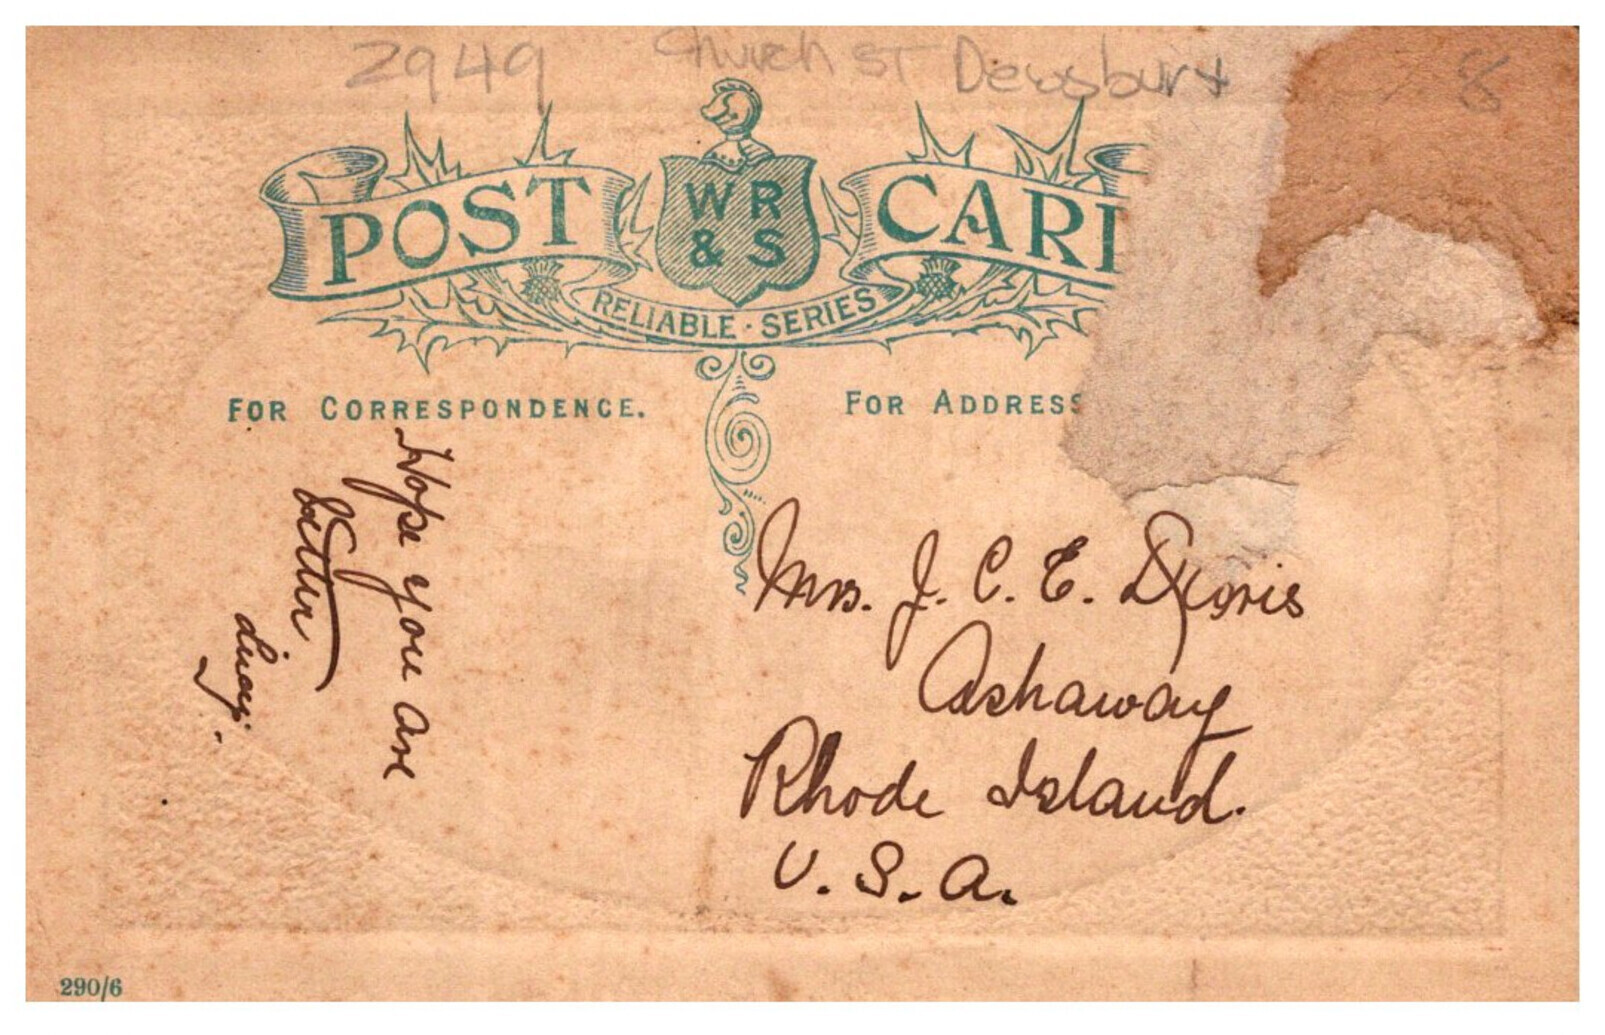 2949 Church St Dewsbury 8
POST CARD
W R
& S
RELIABLE · SERIES
FOR CORRESPONDENCE.
FOR ADDRESS
Hope you are
better,
Mrs. J. C. E.
Ashaway
Rhode Island.
U. S. A.
290/6